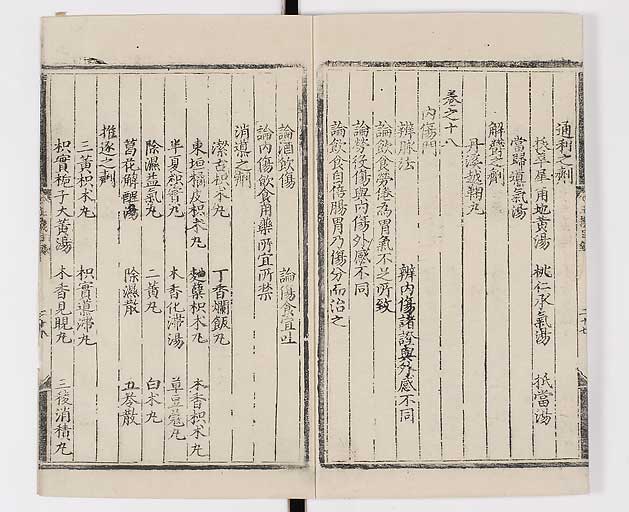 通利之劑
桃仁承氣湯 抵當湯
當歸導氣湯
解鬱之劑
丹溪越鞠丸
卷之十八
內傷門
辨脉法 辨內傷諸證與外感不同
論飲食勞倦為胃氣不足所致
論勞役傷與內傷外感不同
論飲食自倍腸胃乃傷分而治之
論酒飲傷 論傷食宜吐
論內傷飲食用藥所宜所禁
消導之劑
潔古枳朮丸 丁香爛飯丸
東垣橘皮枳朮丸 麯蘗枳朮丸 木香枳朮丸
半夏枳實丸 木香化滯湯 草豆蔻丸
除濕益氣丸 二黃丸 白朮丸
葛花解酲湯 除濕散 五苓散
推逐之劑
三黃枳朮丸 枳實導滯丸
枳實梔子大黃湯 木香見晛丸 三稜消積丸